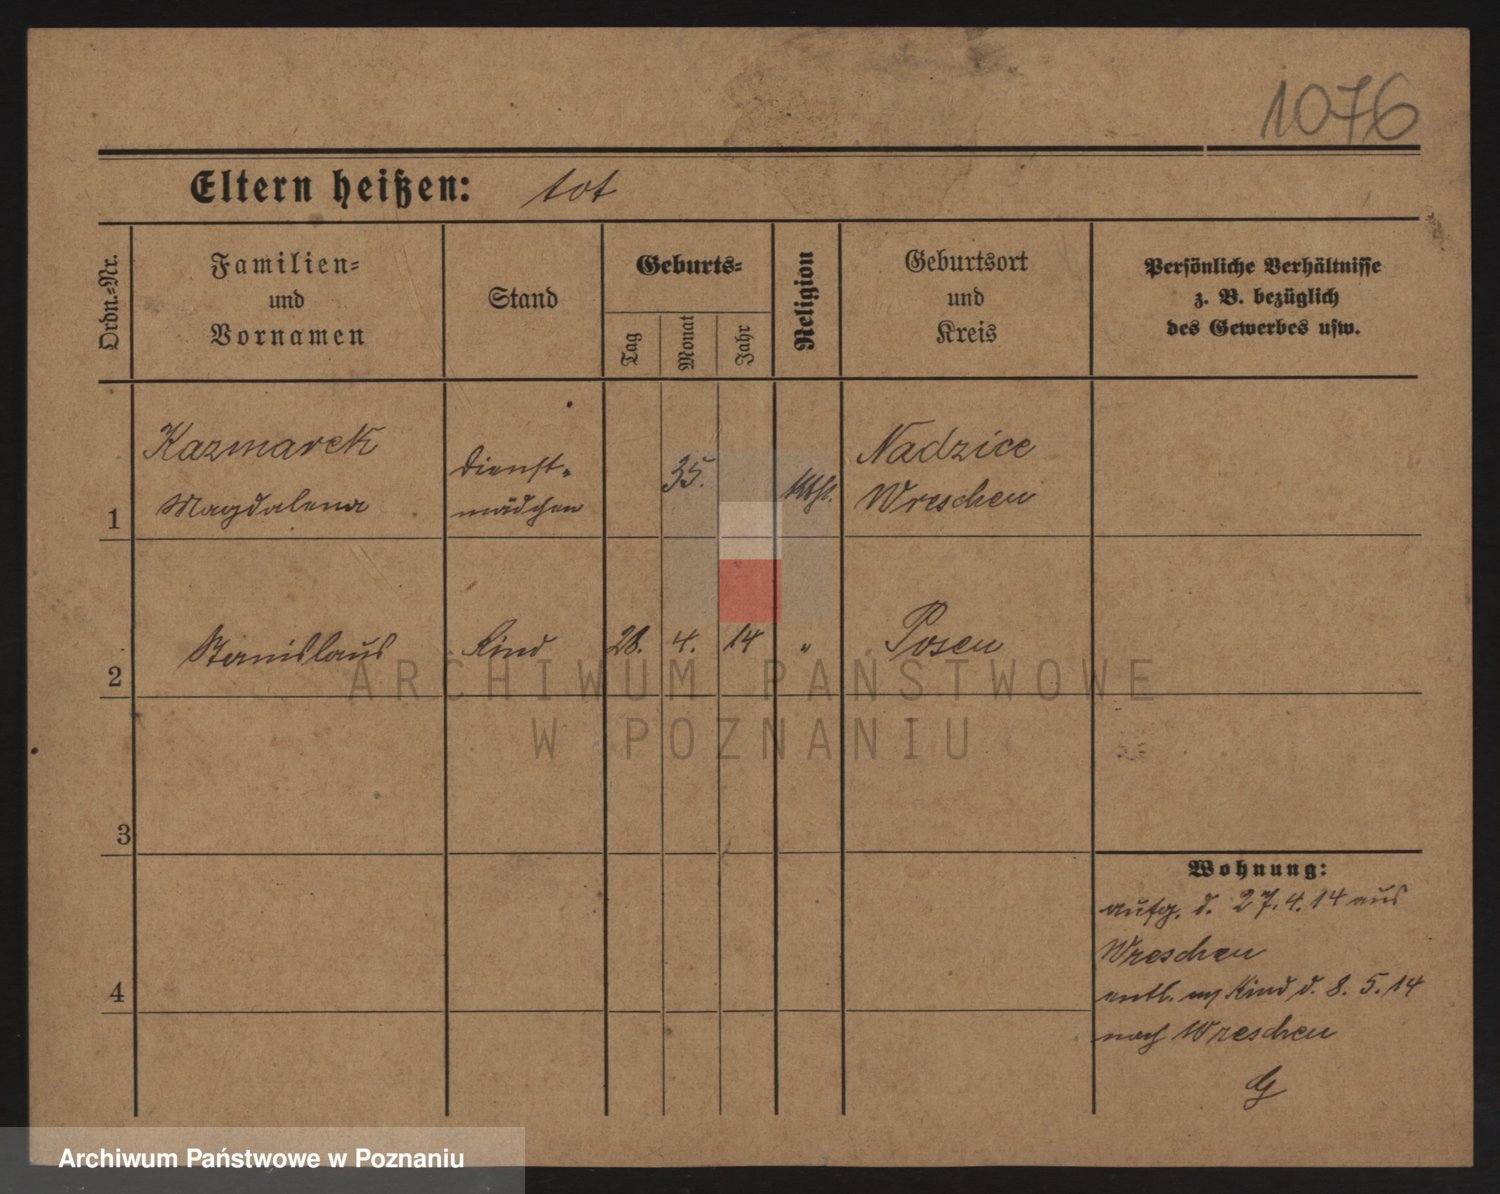 1076
Eltern heißen: tot
Ordn.-Nr.
Familien-
und
Vornamen
Stand
Geburts-
Tag
Monat
Jahr
Religion
Geburtsort
und
Kreis
Persönliche Verhältnisse
z. B. bezüglich
des Gewerbes usw.
1
Kazmarek
Magdalena
Dienst-
mädchen
35.
kthl.
Nadzice
Wreschen
2
Stanislaus
Kind
28.
4.
14
"
Posen
3
4
Wohnung:
aufg. d. 27.4.14 aus
Wreschen
entl. Kind d. 8.5.14
nach Wreschen
G
ARCHIWUM PAŃSTWOWE
W POZNANIU
Archiwum Państwowe w Poznaniu